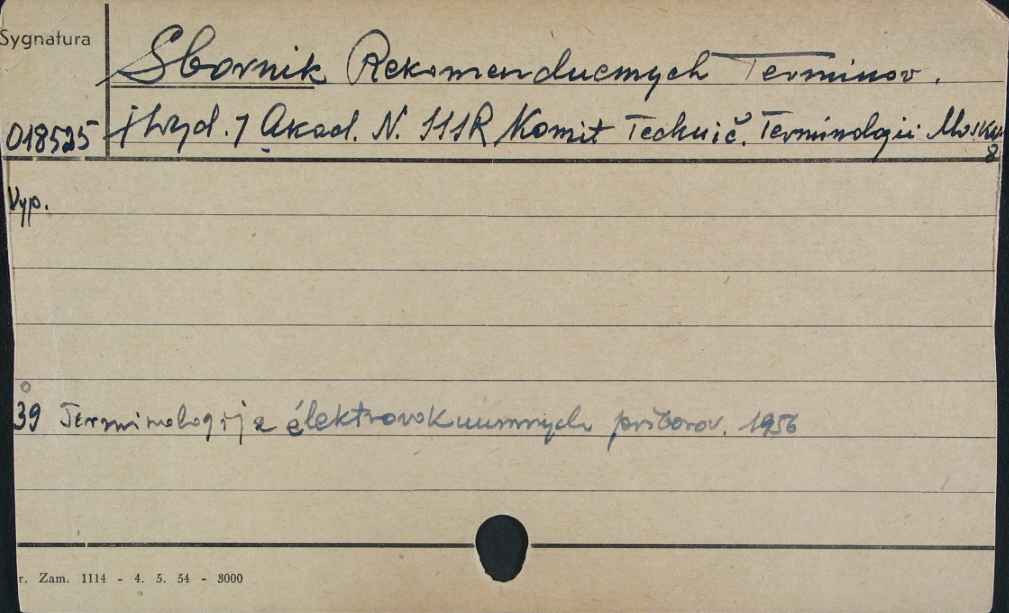 Sygnatura
Sbornik Rekomenduemych Terminov.
018525 [Wyd.] Akad. N. SSSR Komit Technič. Terminologii Moskva
8
Vyp.
39 Terminologija élektrovakuumnych priborov. 1956
r. Zam. 1114 - 4. 5. 54 - 3000